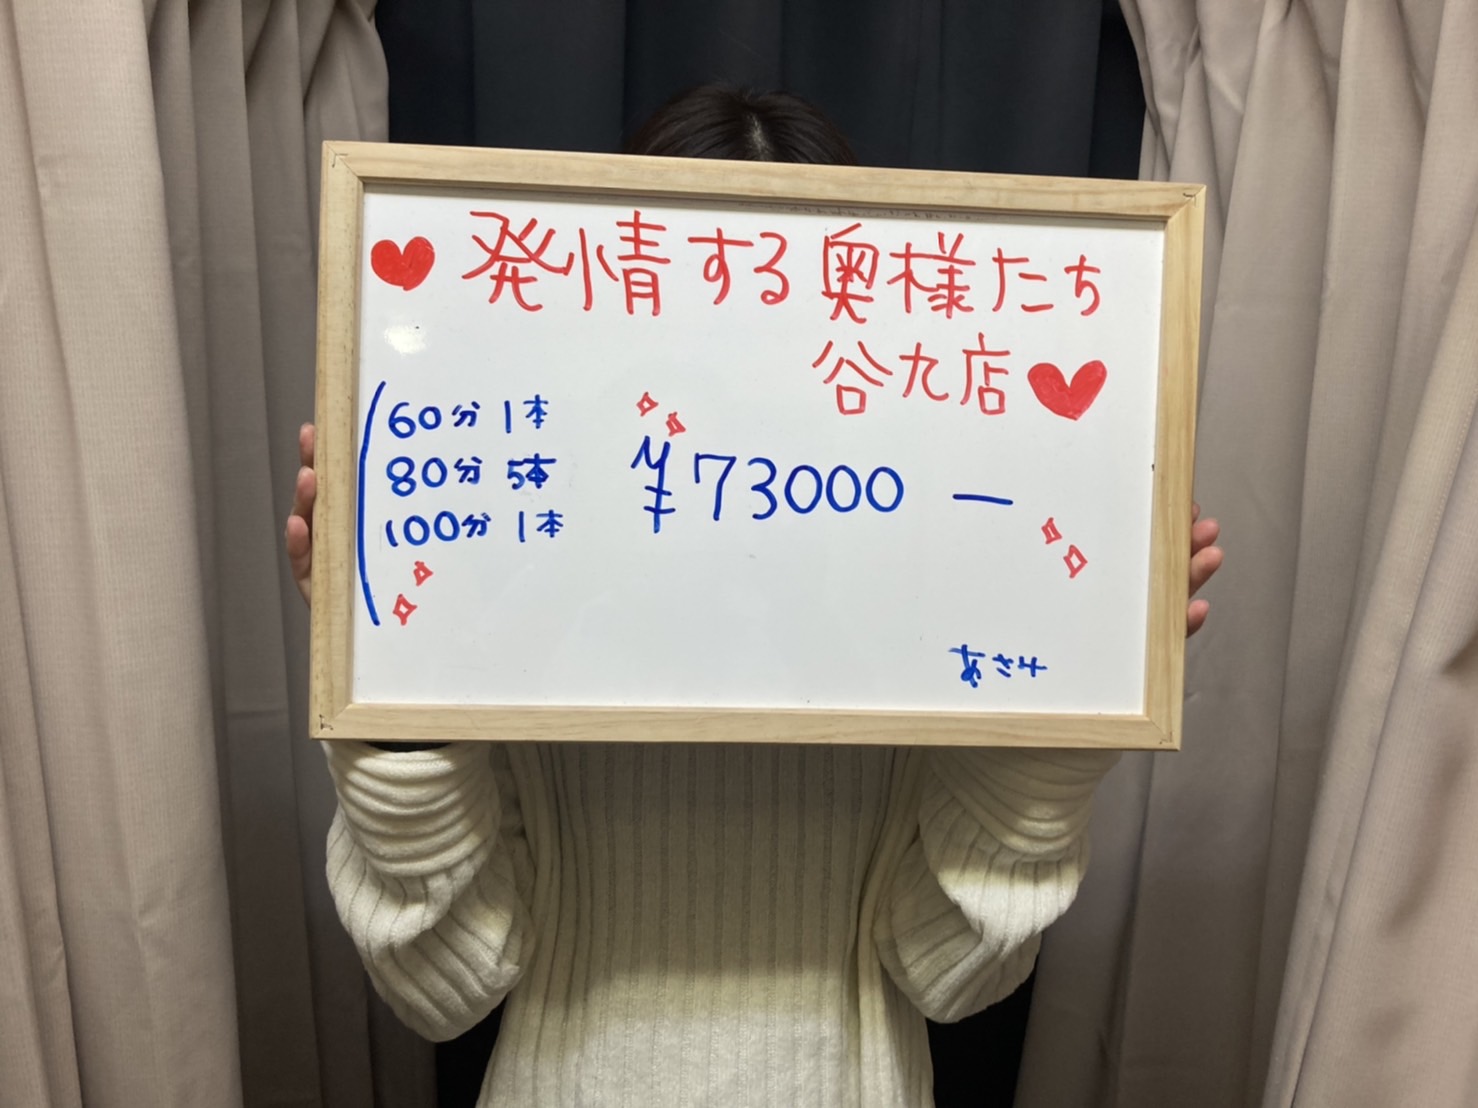 ♥発情する奥様たち
谷九店♥
60分 1本
80分 5本
100分 1本
¥73000ー
あさみ